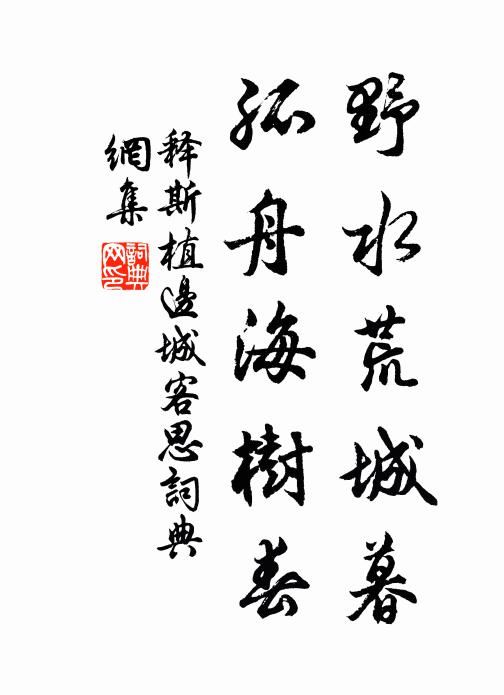 野水荒城暮
孤舟海樹春
释斯植邊城客思詞典
網集
詞典
网印